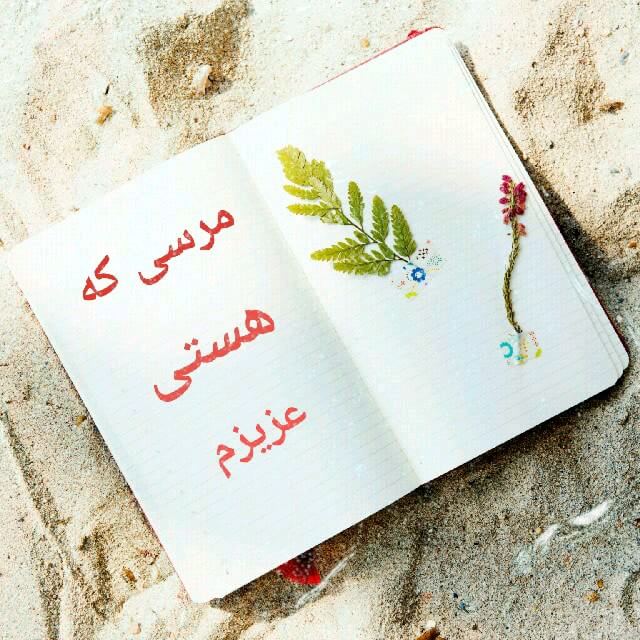 مرسی که
هستی
عزیزم